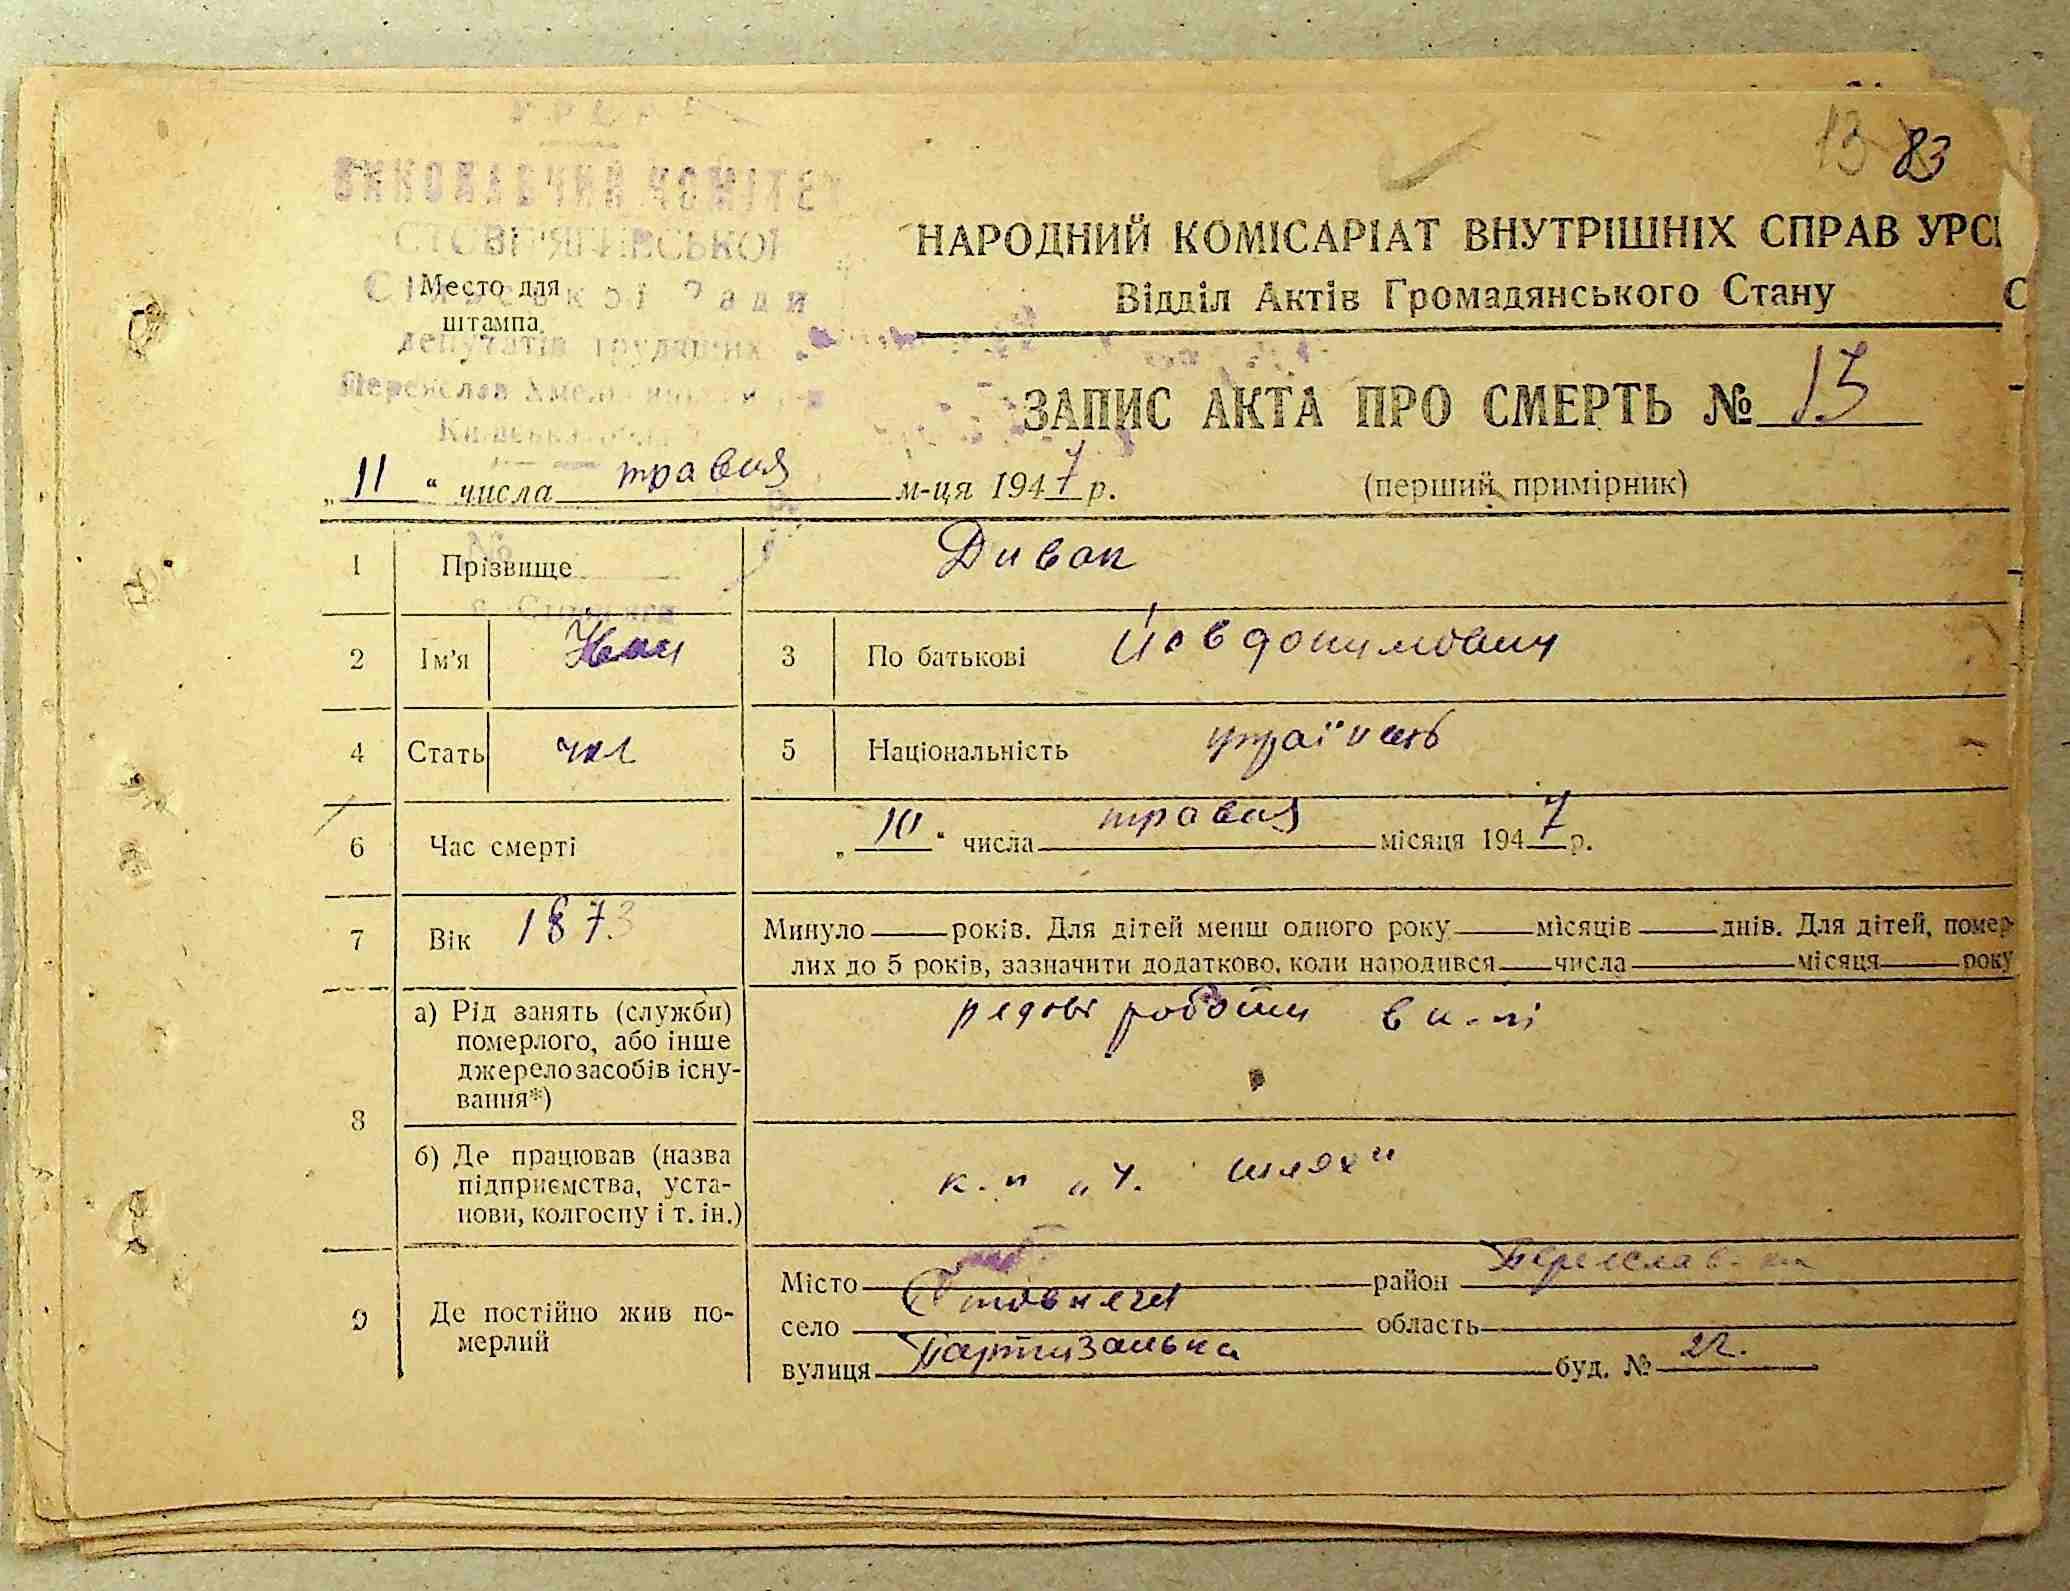 13 83
УРСР
ВИКОНАВЧИЙ КОМІТЕТ
СТОВП'ЯГІВСЬКОЇ
Сільської Ради
депутатів трудящих
Київської
НАРОДНИЙ КОМІСАРІАТ ВНУТРІШНІХ СПРАВ УРС
Відділ Актів Громадянського Стану
Место для
штампа
ЗАПИС АКТА ПРО СМЕРТЬ № 13
„11“ числа травня м-ця 1947 р.
(перший примірник)
1 Прізвище Дивак
2 Ім'я Иван 3 По батькові Йовдокимович
4 Стать чол 5 Національність українець
6 Час смерті „10“ числа травня місяця 1947 р.
7 Вік 1873 Минуло років. Для дітей менш одного року місяців днів. Для дітей, помер-
лих до 5 років, зазначити додатково, коли народився числа місяця року
8 а) Рід занять (служби)
померлого, або інше
джерело засобів існу-
вання*)
рядові роботи в к-пі
б) Де працював (назва
підприємства, уста-
нови, колгоспу і т. ін.)
к-п „Ч. шлях"
9 Де постійно жив по-
мерлий
Місто район Переяслав-
село Стовпяги область
вулиця Партизанська буд. № 22.